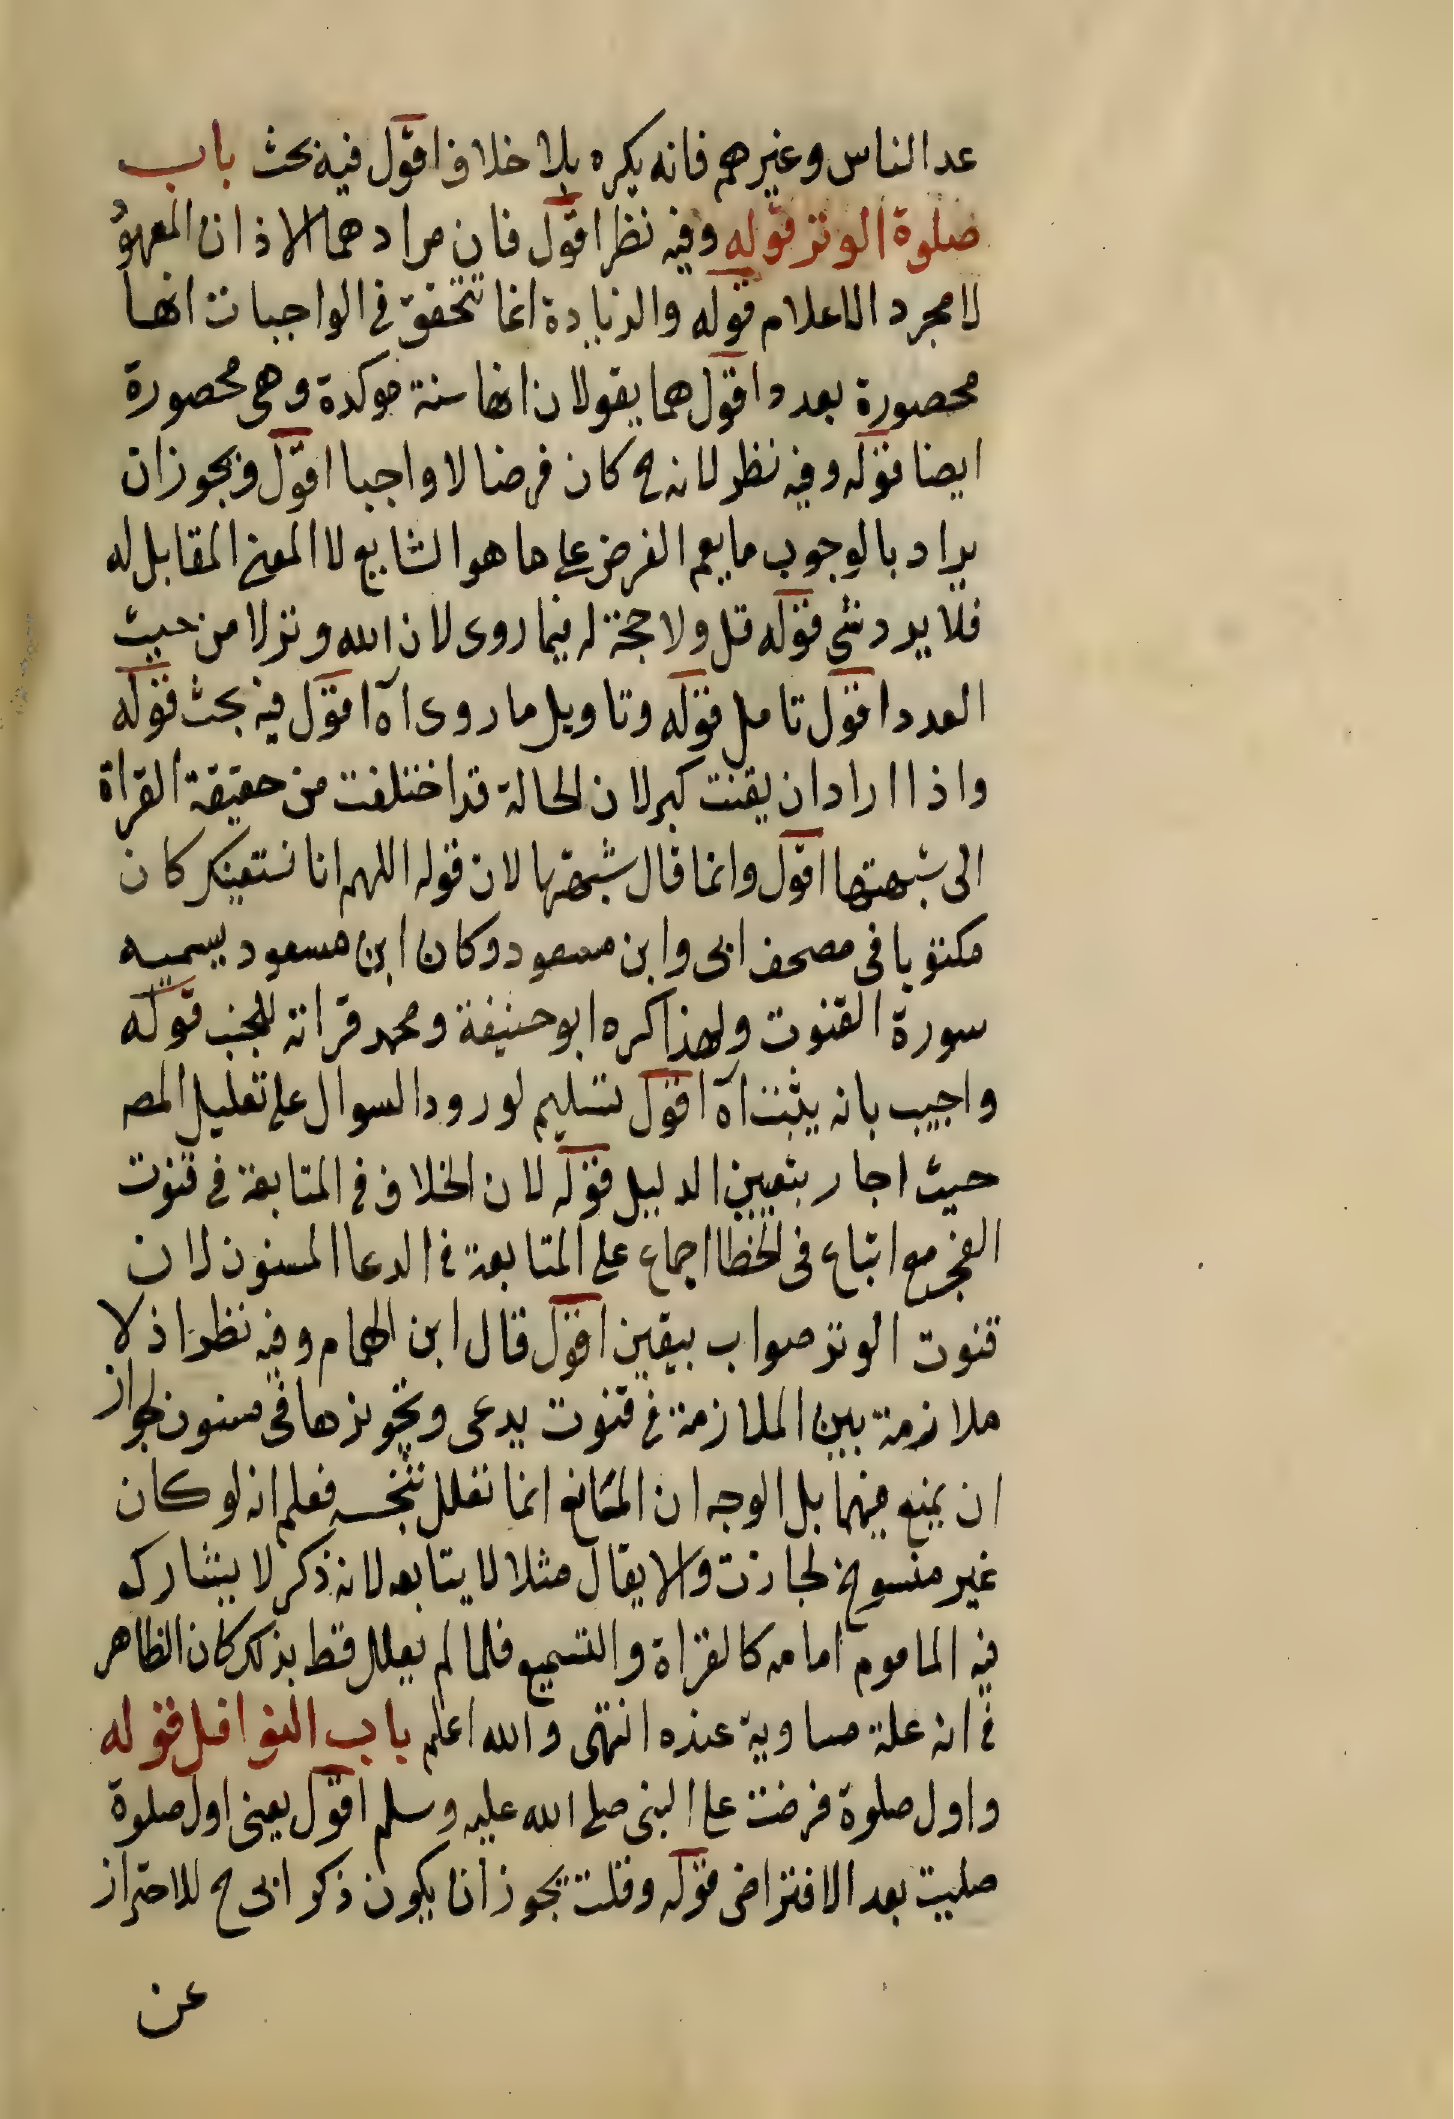 عد الناس وغيرهم فانه يكره بلا خلاف اقول فيه بحث باب
صلوة الوتر قوله وفيه نظر اقول فان مرادهما الاذان المعهود
لا مجرد الاعلام قوله والزيادة انما تتحقق في الواجبات انها
محصورة بعدد اقول هما يقولان انها سنة موكدة وهي محصورة
ايضا قوله وفيه نظر لانه ح كان فرضا لا واجبا اقول ويجوز ان
يراد بالوجوب ما يعم الفرض على ما هو الشايع لا المعنى المقابل له
فلا يرد شي قوله قل ولا حجة له فيما روى لان الله وتر لا من حيث
العدد اقول تامل قوله وتاويل ما روى آه اقول فيه بحث قوله
واذا اراد ان يقنت كبر لان الحالة قد اختلفت من حقيقة القراة
الى شبهتها اقول وانما قال شبهتها لان قوله اللهم انا نستعينك كان
مكتوبا في مصحف ابي وابن مسعود وكان ابن مسعود يسميه
سورة القنوت ولهذا كره ابو حنيفة ومحمد قراته للجنب قوله
واجيب بانه يثبت آه اقول تسليم لورود السوال على تعليل المص
حيث اجار بتعيين الدليل قوله لان الخلاف في المتابعة في قنوت
الفجر مع اتباع في الخطا اجماع على المتابعة في الدعا المسنون لان
قنوت الوتر صواب بيقين اقول قال ابن الهمام وفيه نظر اذ لا
ملازمة بين الملازمة في قنوت يدعى وتجويزها في مسنون لجواز
ان يمنع فيهما بل الوجه ان المانع انما تعلل بنسخه فعلم انه لو كان
غير منسوخ لجازت والا يقال مثلا لا يتابعه لانه ذكر لا يشارك
فيه الماموم امامه كالقراة والتسميع فلما لم يعلل قط بذلك كان الظاهر
في انه علة مساوية عنده انتهى والله اعلم باب النوافل قوله
واول صلوة فرضت على النبى صلى الله عليه وسلم اقول يعنى اول صلوة
صليت بعد الافتراض قوله وقلت يجوز ان يكون ذكر ابى ح للاحتراز
عن